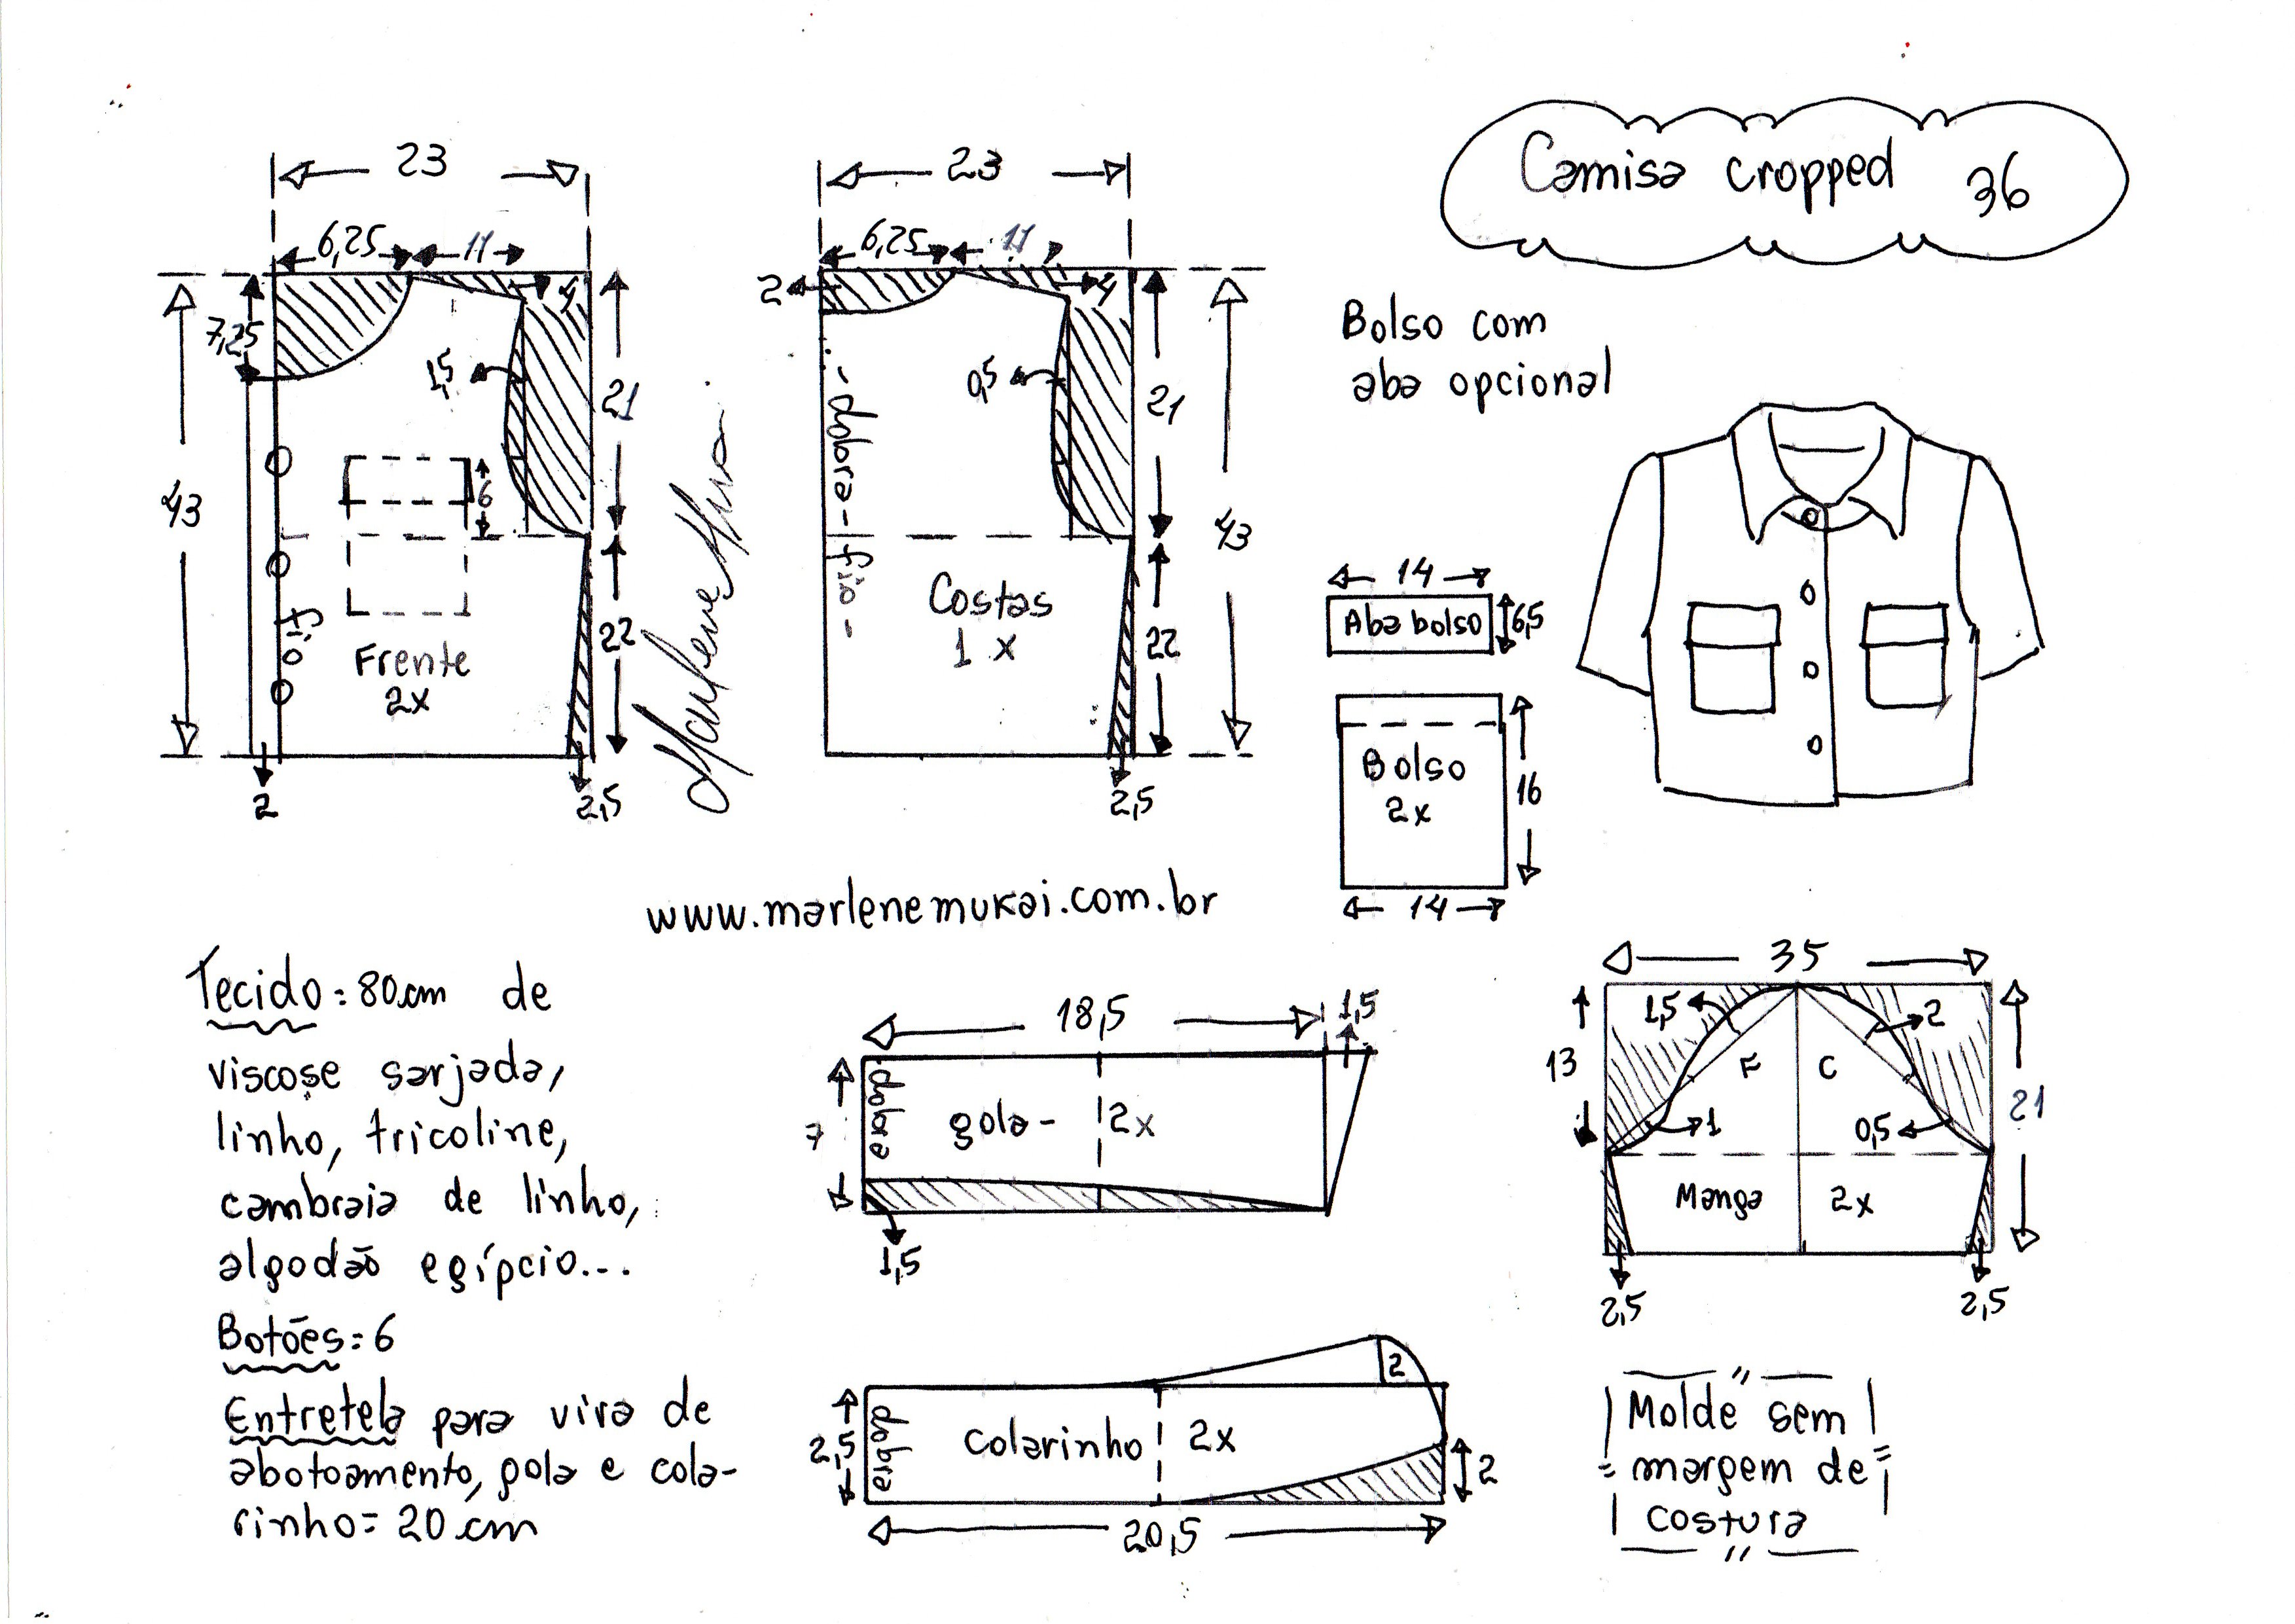 Camisa cropped 36
23
6,25 11
4
7,25
1,5
21
43
6
22
fio
Frente
2x
2
2,5
Marlene Mukai
23
6,25 11
2
4
0,5
21
43
- dobra - fio -
Costas
1 x
22
2,5
Bolso com
aba opcional
14
Aba bolso
6,5
Bolso
2x
16
14
www.marlenemukai.com.br
Tecido = 80cm de
viscose sarjada,
linho, tricoline,
cambraia de linho,
algodão egípcio...
Botões = 6
Entretela para vira de
abotoamento, gola e cola-
rinho = 20 cm
18,5
1,5
7
dobra
gola - 2x
1,5
2
2,5
dobra
Colarinho 2x
2
20,5
35
1,5
2
13
F C
21
1
0,5
Manga 2x
2,5
2,5
Molde sem
margem de
costura